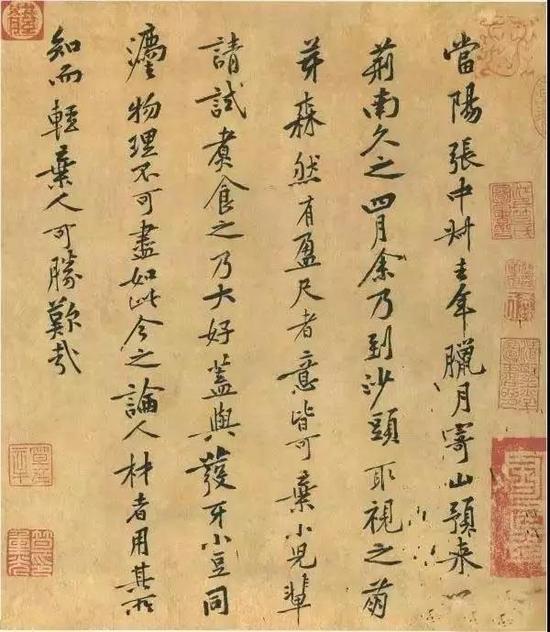 當陽張中叔去年臘月寄山預來以
荊南久之四月余乃到沙頭取視之萌
芽森然有盈尺者意皆可棄小兒輩
請試煮食之乃大好蓋與發牙小豆同
灋物理不可盡如此今之論人材者用其所
知而輕棄人可勝歎哉